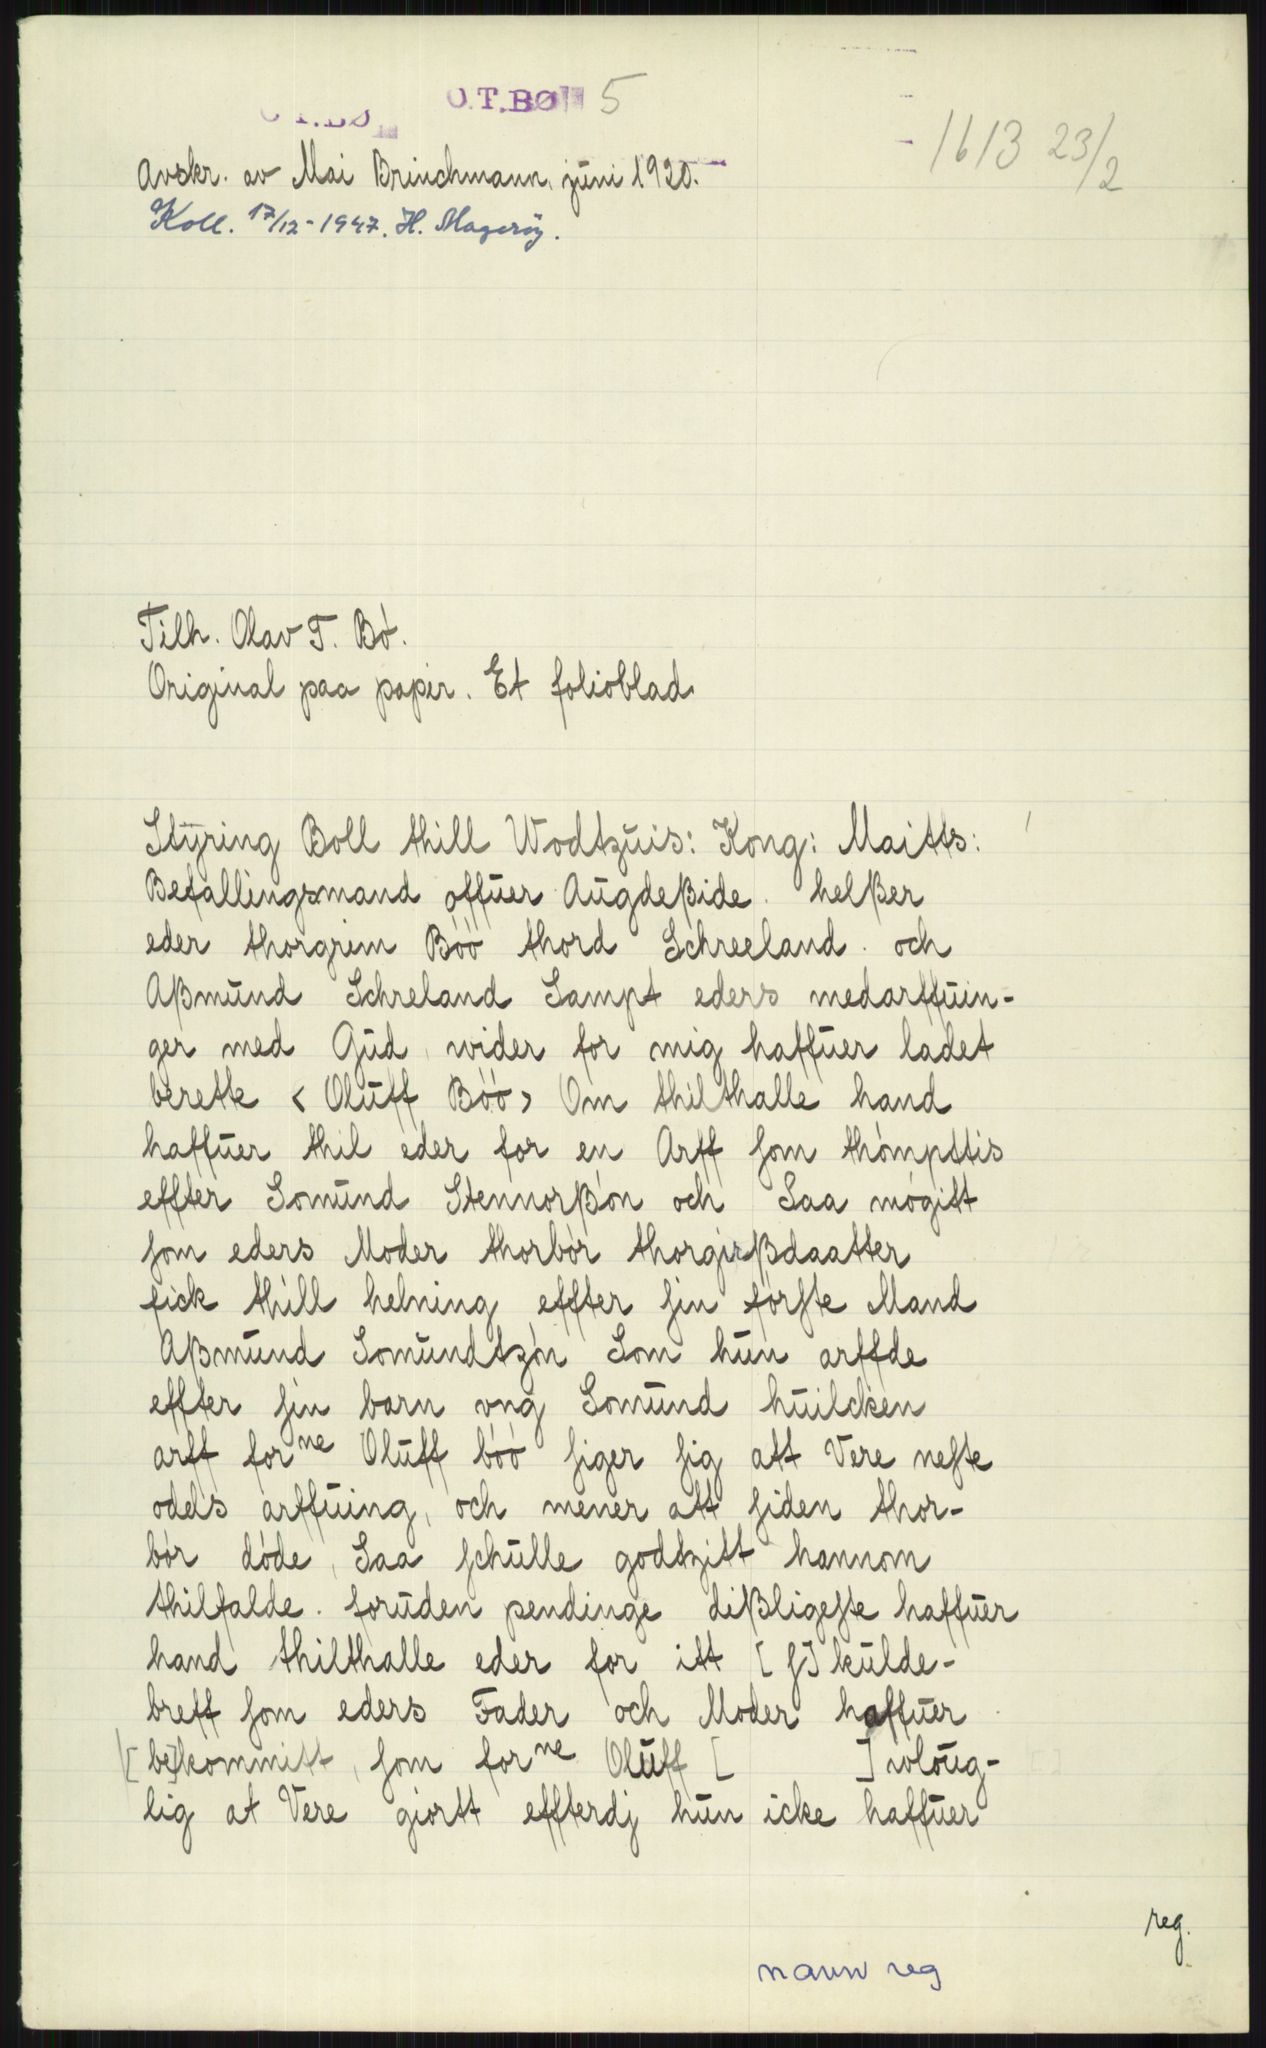 O.T.BØ 5
1613 23/2
Avskr. av Mai Brinchmann, juni 1920.
Koll. 17/12-1947. H. Magerøy.
Tilh. Olav T. Bó.
Original paa papir. Et folioblad
Styring Boll thill Wodtzuis: Kong: Maitts:
Befallingsmand offuer Augdeßide. helßer
eder thorgrim Böö thord Schreeland. och
Aßmund Schreland Sampt eders medarffuin-
ger med Gud, wider for mig haffuer ladet
berette < Oluff Böö > Om thilthalle hand
haffuer thil eder for en Arff som thómpttis
effter Somund Stennorßón och Saa mógitt
som eders Moder thorbór thorgirßdaatter
fick thill helning effter sin fórste Mand
Aßmund Somundtzón Som hun arffde
effter sin barn vng Somund huilcken
arff forne Oluff bóó siger sig att Vere neste
odels arffuing, och mener att siden thor-
bór dóde, Saa schulle godtzitt hannom
thilfalde. foruden pendinge dißligeste haffuer
hand thilthalle eder for itt [s]kulde-
breff som eders Fader och Moder haffuer
[be]kommitt, som forne Oluff [ ] wloug-
lig at Vere giortt effterdj hun icke haffuer
reg.
navn reg